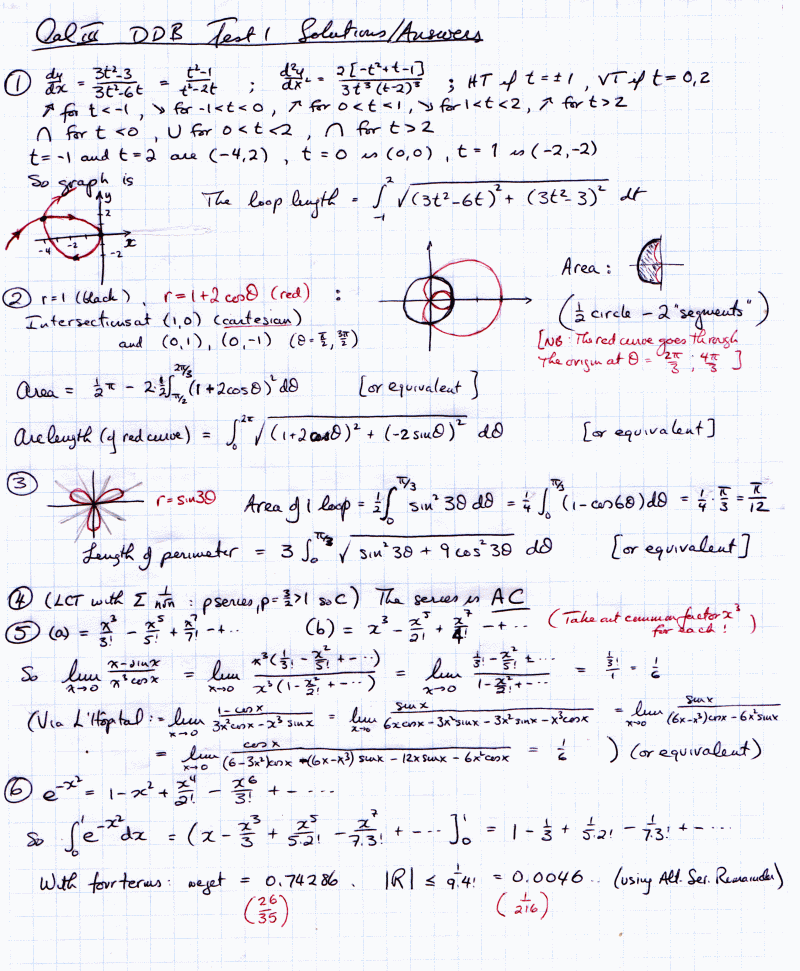 Cal III DDB Test 1 Solutions/Answers
① dy/dx = (3t²-3)/(3t²-6t) = (t²-1)/(t²-2t) ; d²y/dx² = 2[-t²+t-1]/(3t³(t-2)³) ; HT if t=±1, VT if t=0,2
↗ for t<-1, ↘ for -1<t<0, ↗ for 0<t<1, ↘ for 1<t<2, ↗ for t>2
∩ for t<0, ∪ for 0<t<2, ∩ for t>2
t=-1 and t=2 are (-4,2), t=0 is (0,0), t=1 is (-2,-2)
So graph is
The loop length = ∫₋₁² √((3t²-6t)² + (3t²-3)²) dt
y
2
-4 -2 x
-2
② r=1 (black), r=1+2cosθ (red) :
Intersections at (1,0) (cartesian)
and (0,1), (0,-1) (θ=π/2, 3π/2)
Area :
(½ circle - 2 "segments")
[NB: The red curve goes through
the origin at θ = 2π/3, 4π/3]
Area = ½π - 2·½∫_{π/2}^{2π/3} (1+2cosθ)² dθ [or equivalent]
Arc length (of red curve) = ∫₀^{2π} √((1+2cosθ)² + (-2sinθ)²) dθ [or equivalent]
③ r=sin3θ Area of 1 loop = ½∫₀^{π/3} sin²3θ dθ = ¼∫₀^{π/3} (1-cos6θ)dθ = ¼·π/3 = π/12
Length of perimeter = 3∫₀^{π/3} √(sin²3θ + 9cos²3θ) dθ [or equivalent]
④ (LCT with Σ 1/(n√n) : p series, p=3/2>1 so C) The series is AC
⑤ (a) = x³/3! - x⁵/5! + x⁷/7! - +.. (b) = x³ - x⁵/2! + x⁷/4! - +... (Take out common factor x³
for each!)
So lim_{x→0} (x-sinx)/(x³cosx) = lim_{x→0} x³(1/3! - x²/5! + -...)/(x³(1-x²/2! + -...)) = lim_{x→0} (1/3! - x²/5! + ...)/(1-x²/2! + -...) = (1/3!)/1 = 1/6
(Via L'Hôpital := lim_{x→0} (1-cosx)/(3x²cosx-x³sinx) = lim_{x→0} sinx/(6xcosx-3x²sinx-3x²sinx-x³cosx) = lim_{x→0} sinx/((6x-x³)cosx-6x²sinx)
= lim_{x→0} cosx/((6-3x²)cosx-(6x-x³)sinx-12xsinx-6x²cosx) = 1/6 ) (or equivalent)
⑥ e^{-x²} = 1-x²+x⁴/2! - x⁶/3! + -....
So ∫₀¹ e^{-x²}dx = (x - x³/3 + x⁵/(5·2!) - x⁷/(7·3!) + -...]₀¹ = 1 - 1/3 + 1/(5·2!) - 1/(7·3!) + -...
With four terms: we get = 0.74286. |R| ≤ 1/(9·4!) = 0.0046.. (using Alt. Ser. Remainder)
(26/35) (1/216)